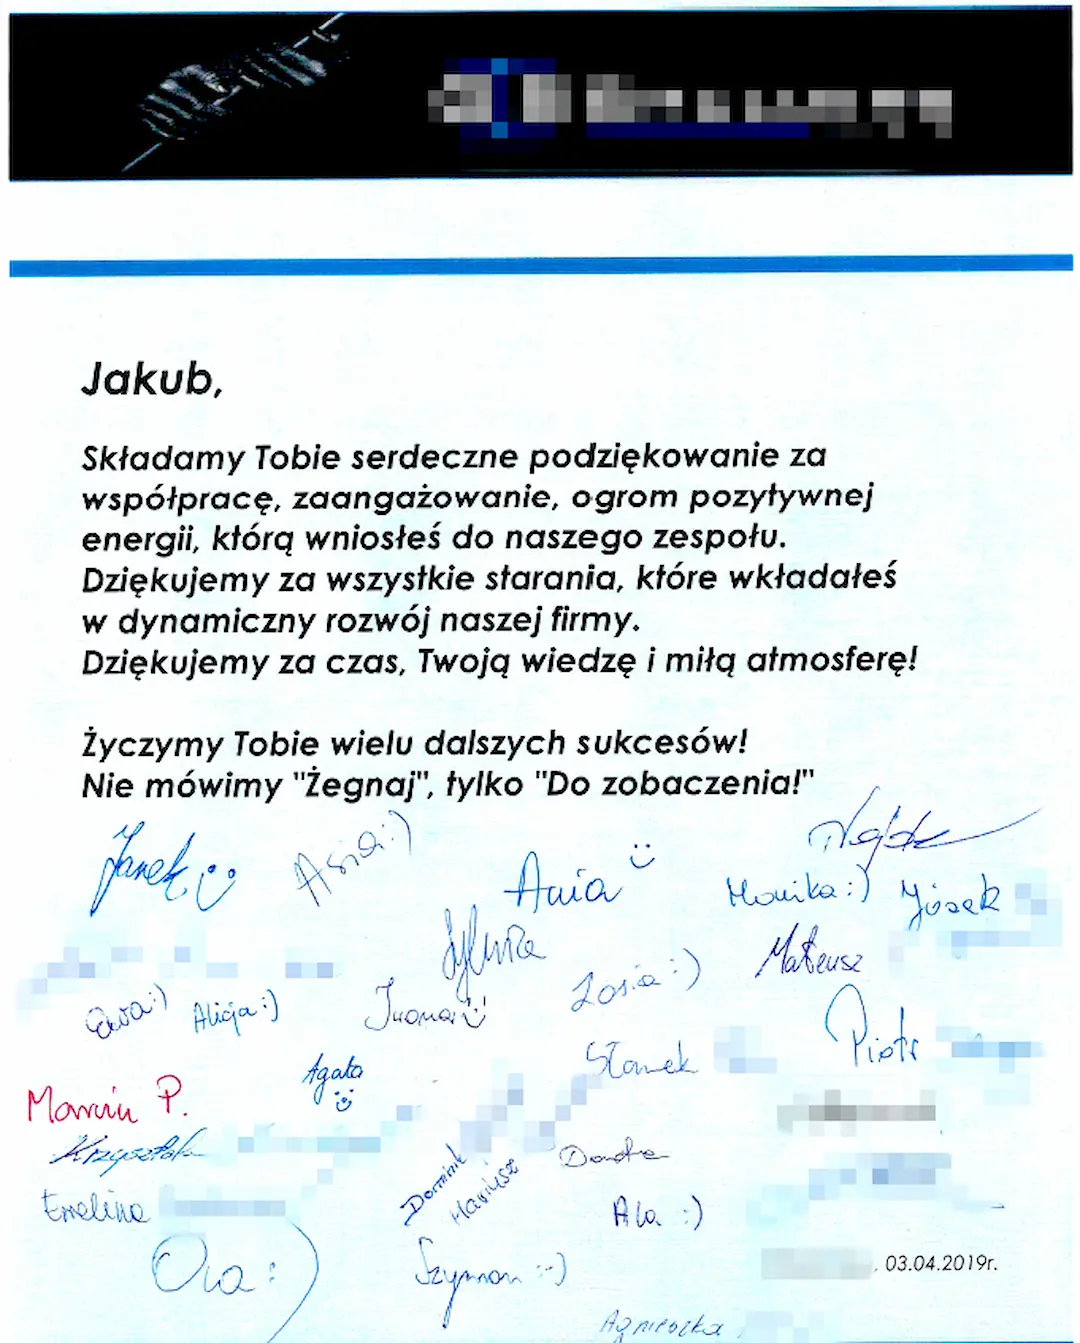 Jakub,
Składamy Tobie serdeczne podziękowanie za
współpracę, zaangażowanie, ogrom pozytywnej
energii, którą wniosłeś do naszego zespołu.
Dziękujemy za wszystkie starania, które wkładałeś
w dynamiczny rozwój naszej firmy.
Dziękujemy za czas, Twoją wiedzę i miłą atmosferę!
Życzymy Tobie wielu dalszych sukcesów!
Nie mówimy "Żegnaj", tylko "Do zobaczenia!"
Janek
Asia :)
Ania
Monika :)
Józek
Sylwia
Mateusz
Zosia :)
Ewa :)
Alicja :)
Iwona
Piotr
Sławek
Agata
Marcin P.
Krzysztof
Dominik
Mariusz
Dorota
Ewelina
Ala :)
Ola :)
Szymon :-)
, 03.04.2019r.
Agnieszka